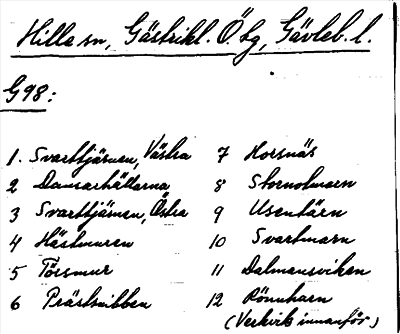 Hille sn, Gästrikl. Ö. tg, Gävleb. l.
G98:
1. Svarttjärnen, Västra
2 Dansarhällarna
3 Svarttjärnen, Östra
4 Hästmuren
5 Tössmur
6 Prästnibben
7 Horsnäs
8 Stornotmarn
9 Usentärn
10 Svartmarn
11 Dalmansviken
12 Rönnharn
(Verkvik innanför)